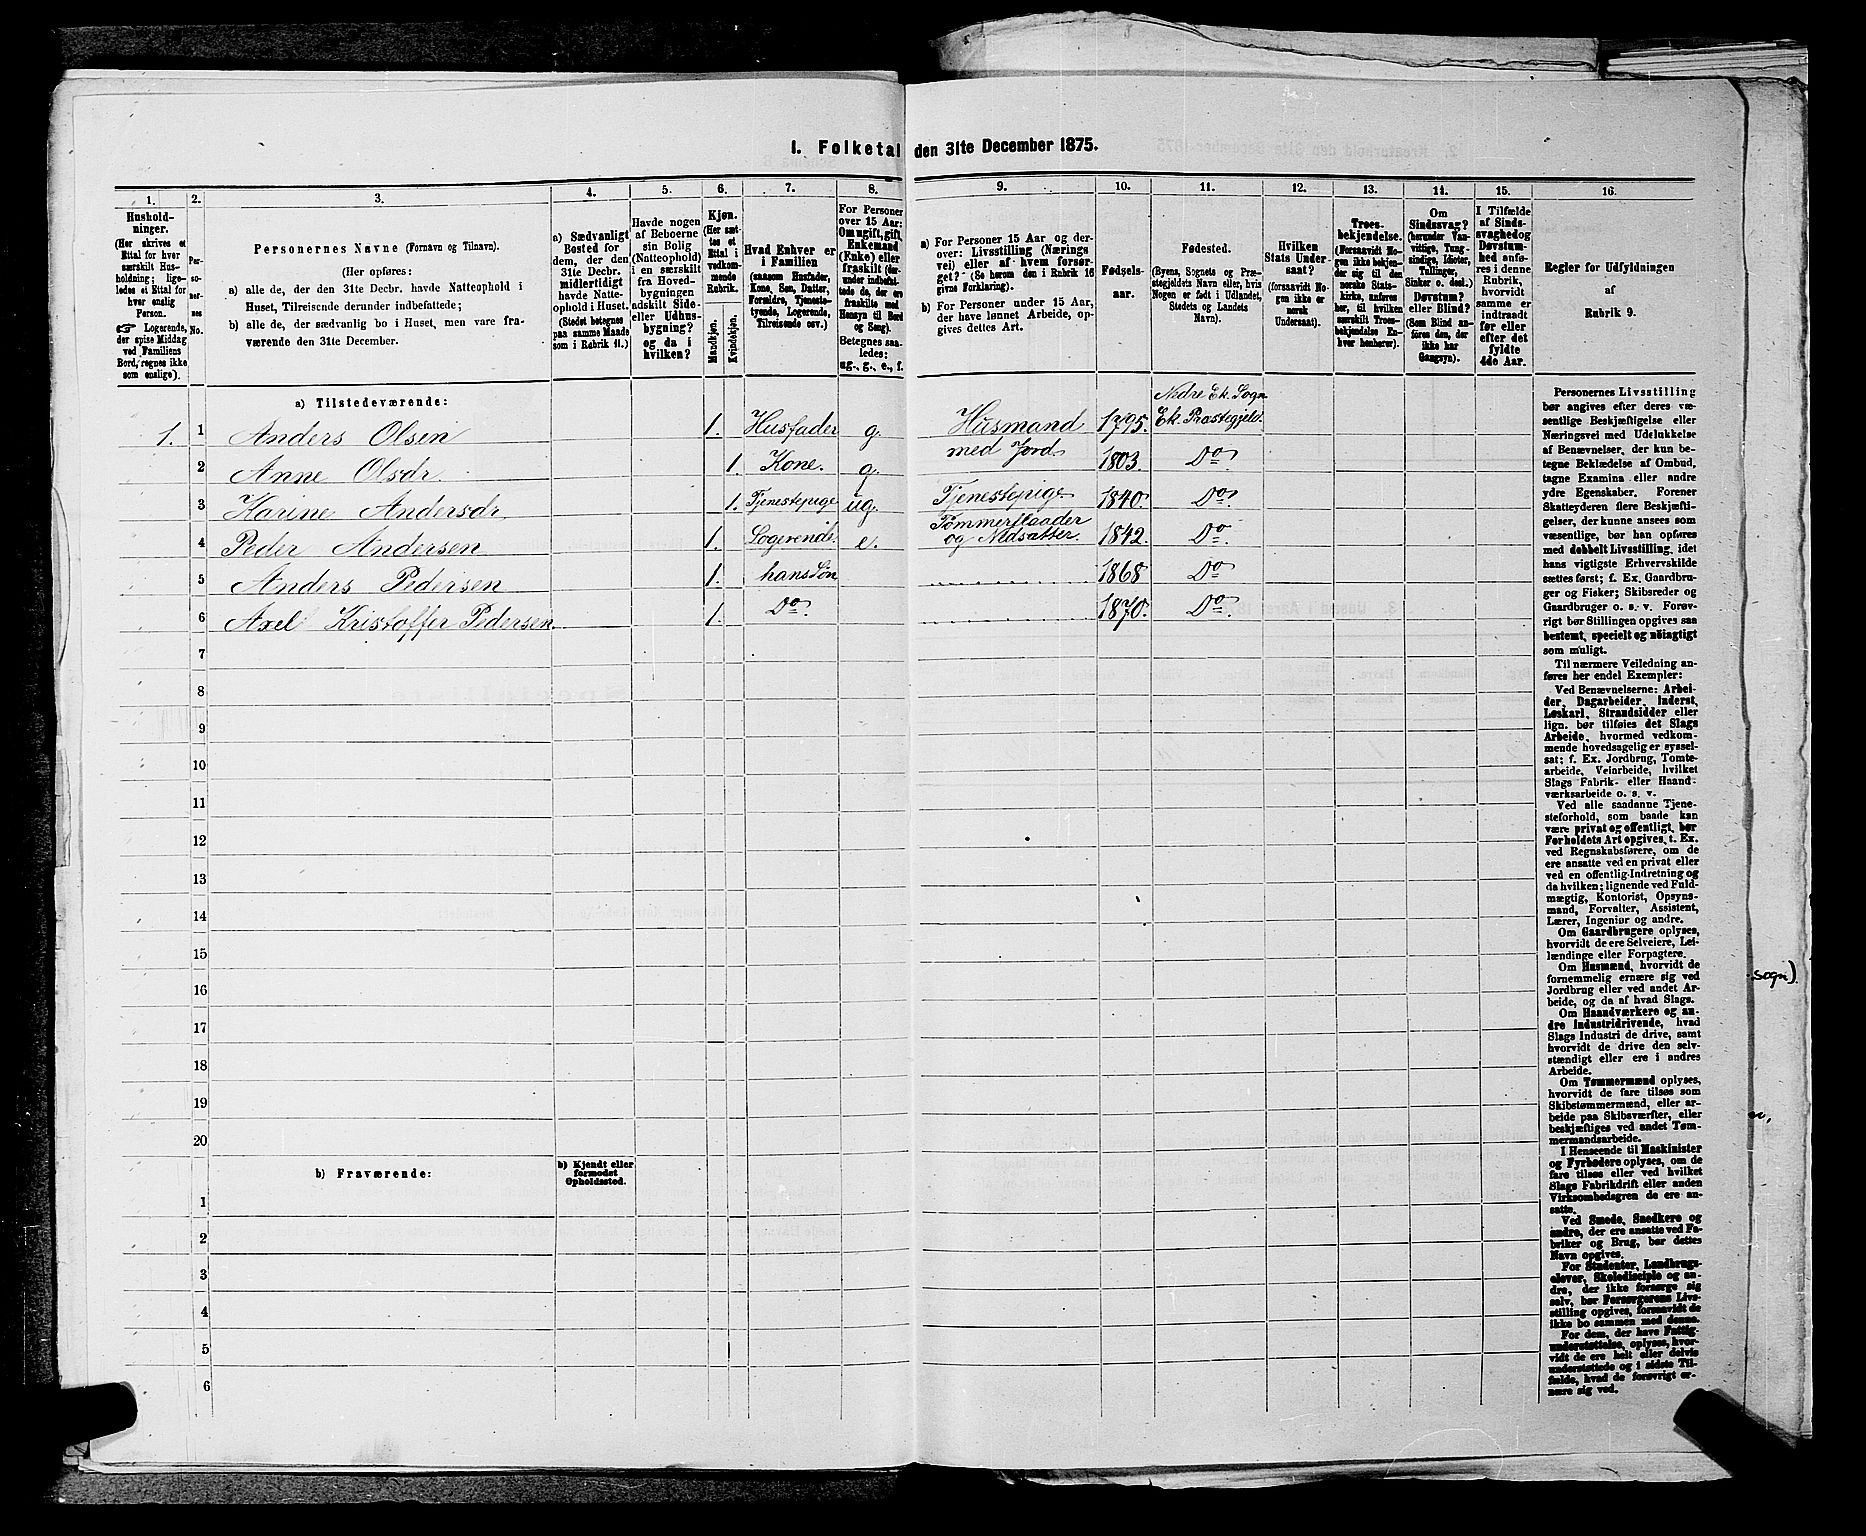 I. Folketal den 31te December 1875.
1. 2. 3. 4. 5. 6. 7. 8. 9. 10. 11. 12. 13. 14. 15. 16.
Hushold-
ninger.
(Her skrives et
Ettal for hver
særskilt Hus-
holdning; lige-
ledes et Ettal for
hver enslig
Person.
☞ Logerende,
der spise Middag
ved Familiens
Bord, regnes ikke
som enslige).
Per-
so-
ner-
nes
No.
Personernes Navne (Fornavn og Tilnavn).
(Her opføres:
a) alle de, der den 31te Decbr. havde Natteophold i
Huset, Tilreisende derunder indbefattede;
b) alle de, der sædvanlig bo i Huset, men vare fra-
værende den 31te December.
a) Sædvanligt
Bosted for
dem, der den
31te Decbr.
midlertidigt
havde Natte-
ophold i Huset.
(Stedet betegnes
paa samme Maade
som i Rubrik 11.)
Havde nogen
af Beboerne
sin Bolig
(Natteophold)
i en særskilt
fra Hoved-
bygningen
adskilt Side-
eller Udhus-
bygning?
og da i
hvilken?
Kjøn.
(Her sæt-
tes et
Ettal i
vedkom-
mende
Rubrik.
Mandkjøn.
Kvindekjøn.
Hvad Enhver er
i Familien
(saasom Husfader,
Kone, Søn, Datter,
Forældre, Tjeneste-
tyende, Logerende,
Tilreisende osv.)
For Personer
over 15 Aar:
Om ugift, gift,
Enkemand
(Enke) eller
fraskilt (der-
under indbefat-
tede de, der ere
fraskilte med
Hensyn til Bord
og Seng).
Betegnes saa-
ledes:
ug., g., e., f.
a) For Personer 15 Aar og der-
over: Livsstilling (Nærings
vei) eller af hvem forsør-
get? (Se herom den i Rubrik 16
givne Forklaring).
b) For Personer under 15 Aar,
der have lønnet Arbeide, op-
gives dettes Art.
Fødsels-
aar.
Fødested.
(Byens, Sognets og Præ-
stegjeldets Navn eller, hvis
Nogen er født i Udlandet,
Stedets og Landets
Navn).
Hvilken
Stats Under-
saat?
(forsaavidt No-
gen ikke er
norsk
Undersaat).
Troes-
bekjendelse.
(Forsaavidt No-
gen ikke bekjen-
der sig til den
norske Stats-
kirke, anføres
her, til hvilken
særskilt Troes-
bekjendelse En-
hver henhører).
Om
Sindssvag?
(herunder Van-
vittige, Idioter,
Tullinger,
Sinker o. desl.)
Døvstum?
eller Blind?
(Som Blind an-
føres den, der
ikke har
Gangsyn).
I Tilfælde
af Sinds-
svaghed og
Døvstum-
hed anfø-
res i denne
Rubrik,
hvorvidt
samme er
indtraadt
før eller
efter det
fyldte
4de Aar.
Regler for Udfyldningen
af
Rubrik 9.
a) Tilstedeværende:
Nedre Ek. Sogn
1. 1 Anders Olsen 1. Husfader g. Husmand 1795. Ek. Præstegjeld.
med Jord
2 Anne Olsdr. 1. Kone. g. 1803. Do.
3 Karine Andersdr 1. Tjenestepige ug. Tjenestepige 1840. Do.
Tømmerflaader
4 Peder Andersen 1. Logerende. e. og 1842. Do.
5 Anders Pedersen 1. hans Søn 1868 Do
6 Axel Kristoffer Pedersen. 1. Do. 1870. Do.
7
8
9
10
11
12
13
14
15
16
17
18
19
20
b) Fraværende:
b) Kjendt eller
formodet
Opholdssted.
1
2
3
4
5
6
Personernes Livsstilling
bør angives efter deres væ-
sentlige Beskjæftigelse eller
Næringsvei med Udelukkelse
af Benævnelser, der kun be-
tegne Beklædelse af Ombud,
tagne Examina eller andre
ydre Egenskaber. Forener
Skatteyderen flere Beskjæfti-
gelser, der kunne ansees som
væsentlige, bør han opføres
med dobbelt Livsstilling, idet
hans vigtigste Erhvervskilde
sættes først; f. Ex. Gaardbru-
ger og Fisker; Skibsreder og
Gaardbruger o. s. v. Forøv-
rigt bør Stillingen opgives saa
bestemt, specielt og nøiagtigt
som muligt.
Til nærmere Veiledning an-
føres her endel Exempler:
Ved Benævnelserne: Arbei-
der, Dagarbeider, Inderst,
Løskarl, Strandsidder eller
lign. bør tilføies det Slags
Arbeide, hvormed vedkom-
mende hovedsagelig er syssel-
sat; f. Ex. Jordbrug, Tomte-
arbeide, Veiarbeide, hvilket
Slags Fabrik- eller Haand-
værksarbeide o. s. v.
Ved alle saadanne Tjene-
steforhold, som baade kan
være privat og offentligt, bør
Forholdets Art opgives, t. Ex.
ved Regnskabsførere, om de
ere ansatte ved en privat eller
ved en offentlig Indretning og
da hvilken; lignende ved Fuld-
mægtig, Kontorist, Opsyns-
mand, Forvalter, Assistent,
Lærer, Ingeniør og andre.
Om Gaardbrugere oplyses,
hvorvidt de ere Selveiere, Lei-
lændinge eller Forpagtere.
Om Husmænd, hvorvidt de
fornemmelig ernære sig ved
Jordbrug eller ved andet Ar-
beide, og da af hvad Slags.
Om Haandværkere og an-
dre Industridrivende, hvad
Slags Industri de drive, samt
hvorvidt de drive den selv-
stændigt eller ere i andres
Arbeide.
Om Tømmermænd oplyses,
hvorvidt de fare tilsøs som
Skibstømmermænd, eller ar-
beide paa Skibsværfter, eller
beskjæftiges ved andet Tøm-
mermandsarbeide.
I Henseende til Maskinister
og Fyrbødere oplyses, om de
fare tilsøs eller ved hvilket
Slags Fabrikdrift eller anden
Virksomhedsgren de ere an-
satte.
Ved Smede, Snedkere og
andre, der ere ansatte ved Fa-
briker og Brug, bør dettes
Navn opgives.
For Studenter, Landbrugs-
elever, Skoledisciple og an-
dre, der ikke forsørge sig
selv, bør Forsørgerens Livs-
stilling opgives, forsaavidt de
ikke bo sammen med denne.
For dem, der have Fattig-
understøttelse, oplyses, hvor-
vidt de ere helt eller delvis
understøttede og i sidste Til-
fælde, hvad de forøvrigt er-
nære sig ved.
sogn).